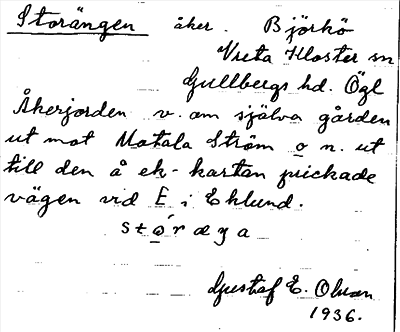 Storängen åker. Björkö
Vreta Kloster sn
Gullbergs hd. Ögl
Åkerjorden v. om själva gården
ut mot Motala Ström o n. ut
till den å ek-kartan prickade
vägen vid E i Eklund.
stǿræŋa
Gustaf E. Olsson
1936.